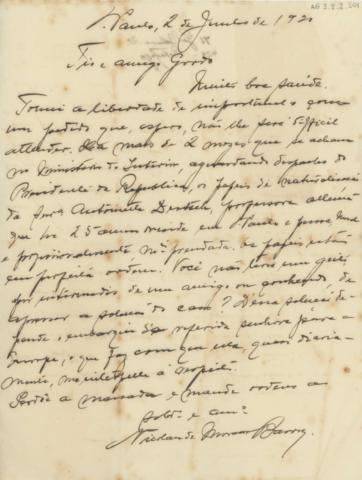 S. Paulo, 2 de Junho de 1920
AG 3.2.2.201
Tio e amigo Gordo
Muita boa saúde.
Tomei a liberdade de importunal-o com
um pedido que, espero, não lhe será difficil
attender. Ha mais de 2 mezes que se acham
no Ministerio do Interior, aguardando despacho do
Presidente da Republica, os papeis de naturalisação
da Snra Antoinette professora allemã
que ha 25 annos reside em S. Paulo e
e proporcionalmente Os papeis estão
em perfeita ordem. Você não teria um geito,
por intermedio de um amigo ou conhecido, de
apressar a solução do caso? Dessa solução de-
pende o embarque da referida senhora para a
Europa, o que faz com que ella, quasi diaria-
mente, me a respeito.
Perdôe a massada e mande ordens ao
sobro e amo
Nicolau de Moraes Barros